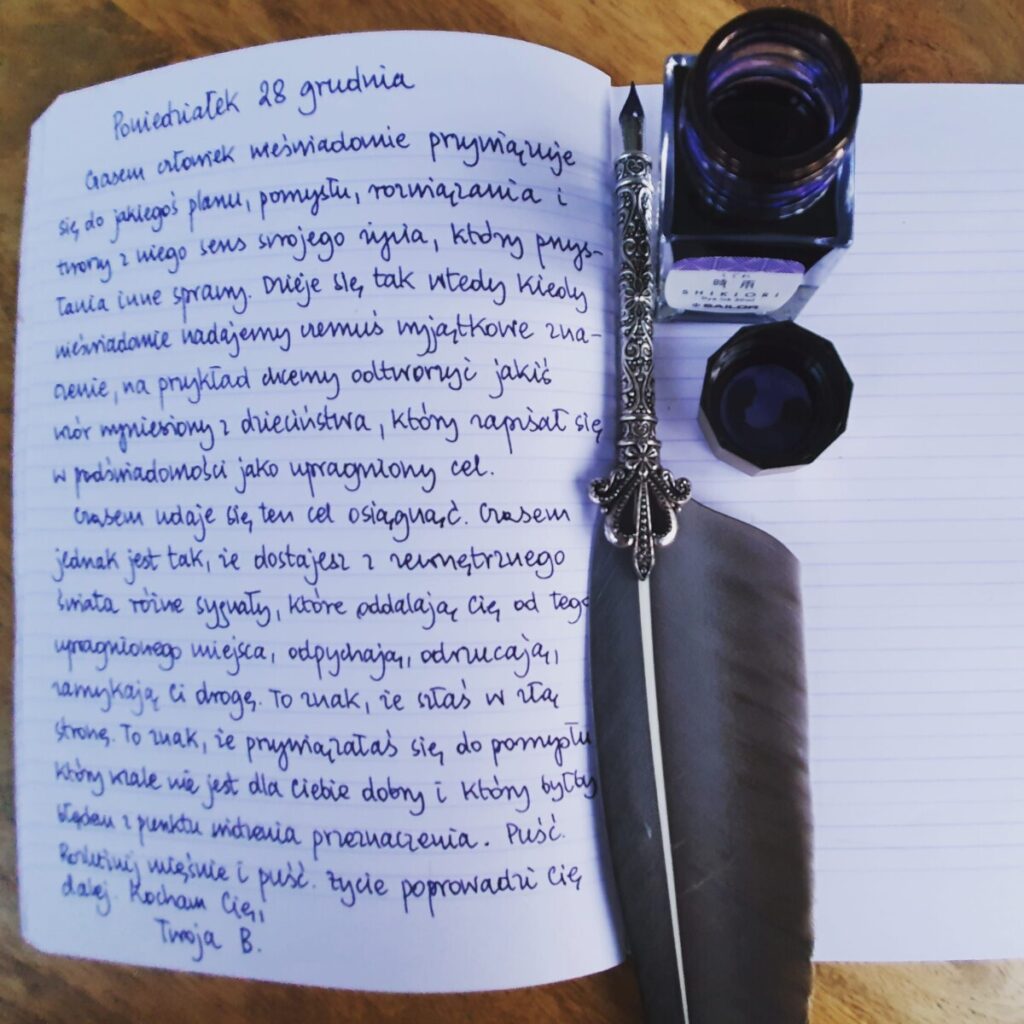 Poniedziałek 28 grudnia
Czasem człowiek nieświadomie przywiązuje
się do jakiegoś planu, pomysłu, rozwiązania i
tworzy z niego sens swojego życia, który przys-
łania inne sprawy. Dzieje się tak wtedy kiedy
nieświadomie nadajemy czemuś wyjątkowe zna-
czenie, na przykład chcemy odtworzyć jakiś
wzór wyniesiony z dzieciństwa, który zapisał się
w podświadomości jako upragniony cel.
Czasem udaje się ten cel osiągnąć. Czasem
jednak jest tak, że dostajesz z zewnętrznego
świata różne sygnały, które oddalają Cię od tego
upragnionego miejsca, odpychają, odrzucają,
zamykają Ci drogę. To znak, że szłaś w złą
stronę. To znak, że przywiązałaś się do pomysłu
który wcale nie jest dla Ciebie dobry i który byłby
błędem z punktu widzenia przeznaczenia. Puść.
Rozluźnij mięśnie i puść. Życie poprowadzi Cię
dalej. Kocham Cię,
Twoja B.
時雨
SHIKIORI
Dye ink 20ml
SAILOR